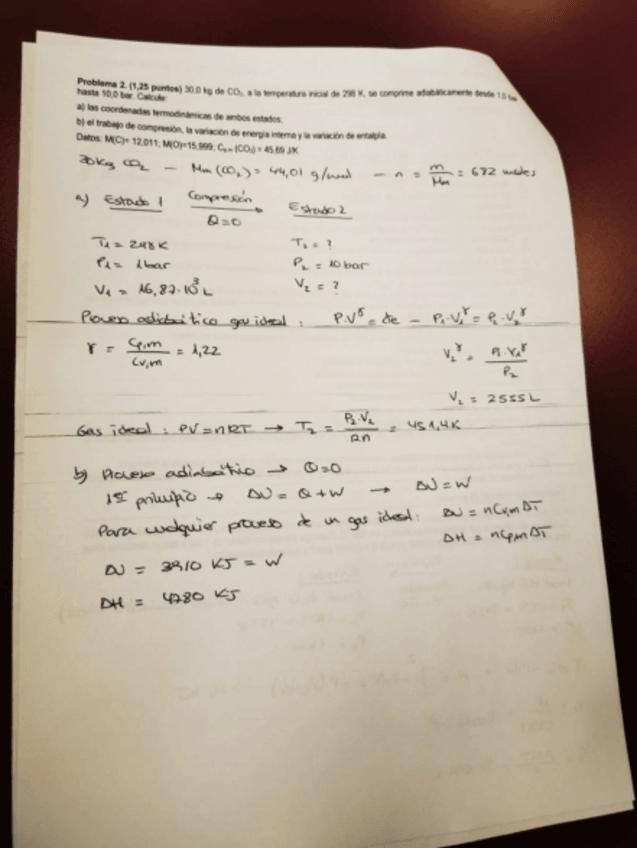 Problema 2. (1,25 puntos) 30,0 kg de CO₂, a la temperatura inicial de 298 K, se comprime adiabáticamente desde 1,0 bar
hasta 10,0 bar. Calcule:
a) las coordenadas termodinámicas de ambos estados;
b) el trabajo de compresión, la variación de energía interna y la variación de entalpía.
Datos: M(C)= 12,011; M(O)=15,999; Cₚ,ₘ (CO₂) = 45,69 J/K
30 kg CO₂ — Mm (CO₂) = 44,01 g/mol — n = m/Mm = 682 moles
a) Estado 1 Compresión Q=0 Estado 2
T₁ = 298 K T₂ = ?
P₁ = 1 bar P₂ = 10 bar
V₁ = 16,87·10³ L V₂ = ?
Proceso adiabático gas ideal: P.V^γ = cte — P₁·V₁^γ = P₂·V₂^γ
γ = Cp,m/Cv,m = 1,22 V₂^γ = P₁·V₁^γ/P₂
V₂ = 2555 L
Gas ideal: PV=nRT → T₂ = P₂·V₂/Rn = 451,4 K
b) Proceso adiabático → Q=0
1er principio → ΔU = Q + W → ΔU = W
Para cualquier proceso de un gas ideal: ΔU = nCv,mΔT
ΔH = nCp,mΔT
ΔU = 3910 KJ = W
ΔH = 4780 KJ